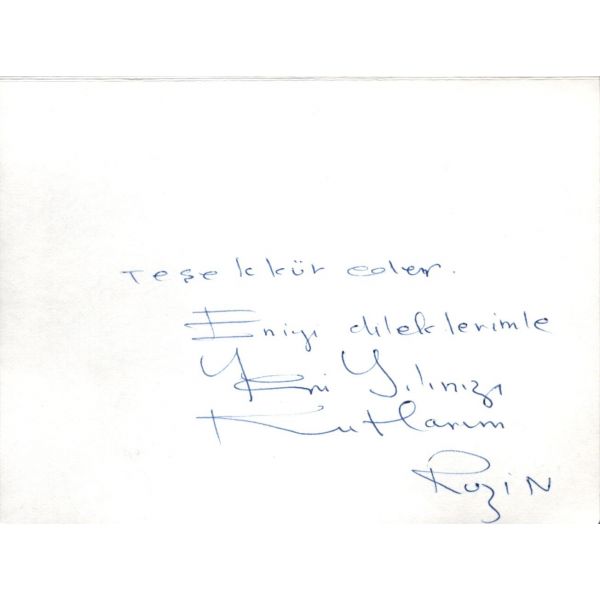 Teşekkür eder.
En iyi dileklerimle
Yeni Yılınızı
Kutlarım
Ruzin